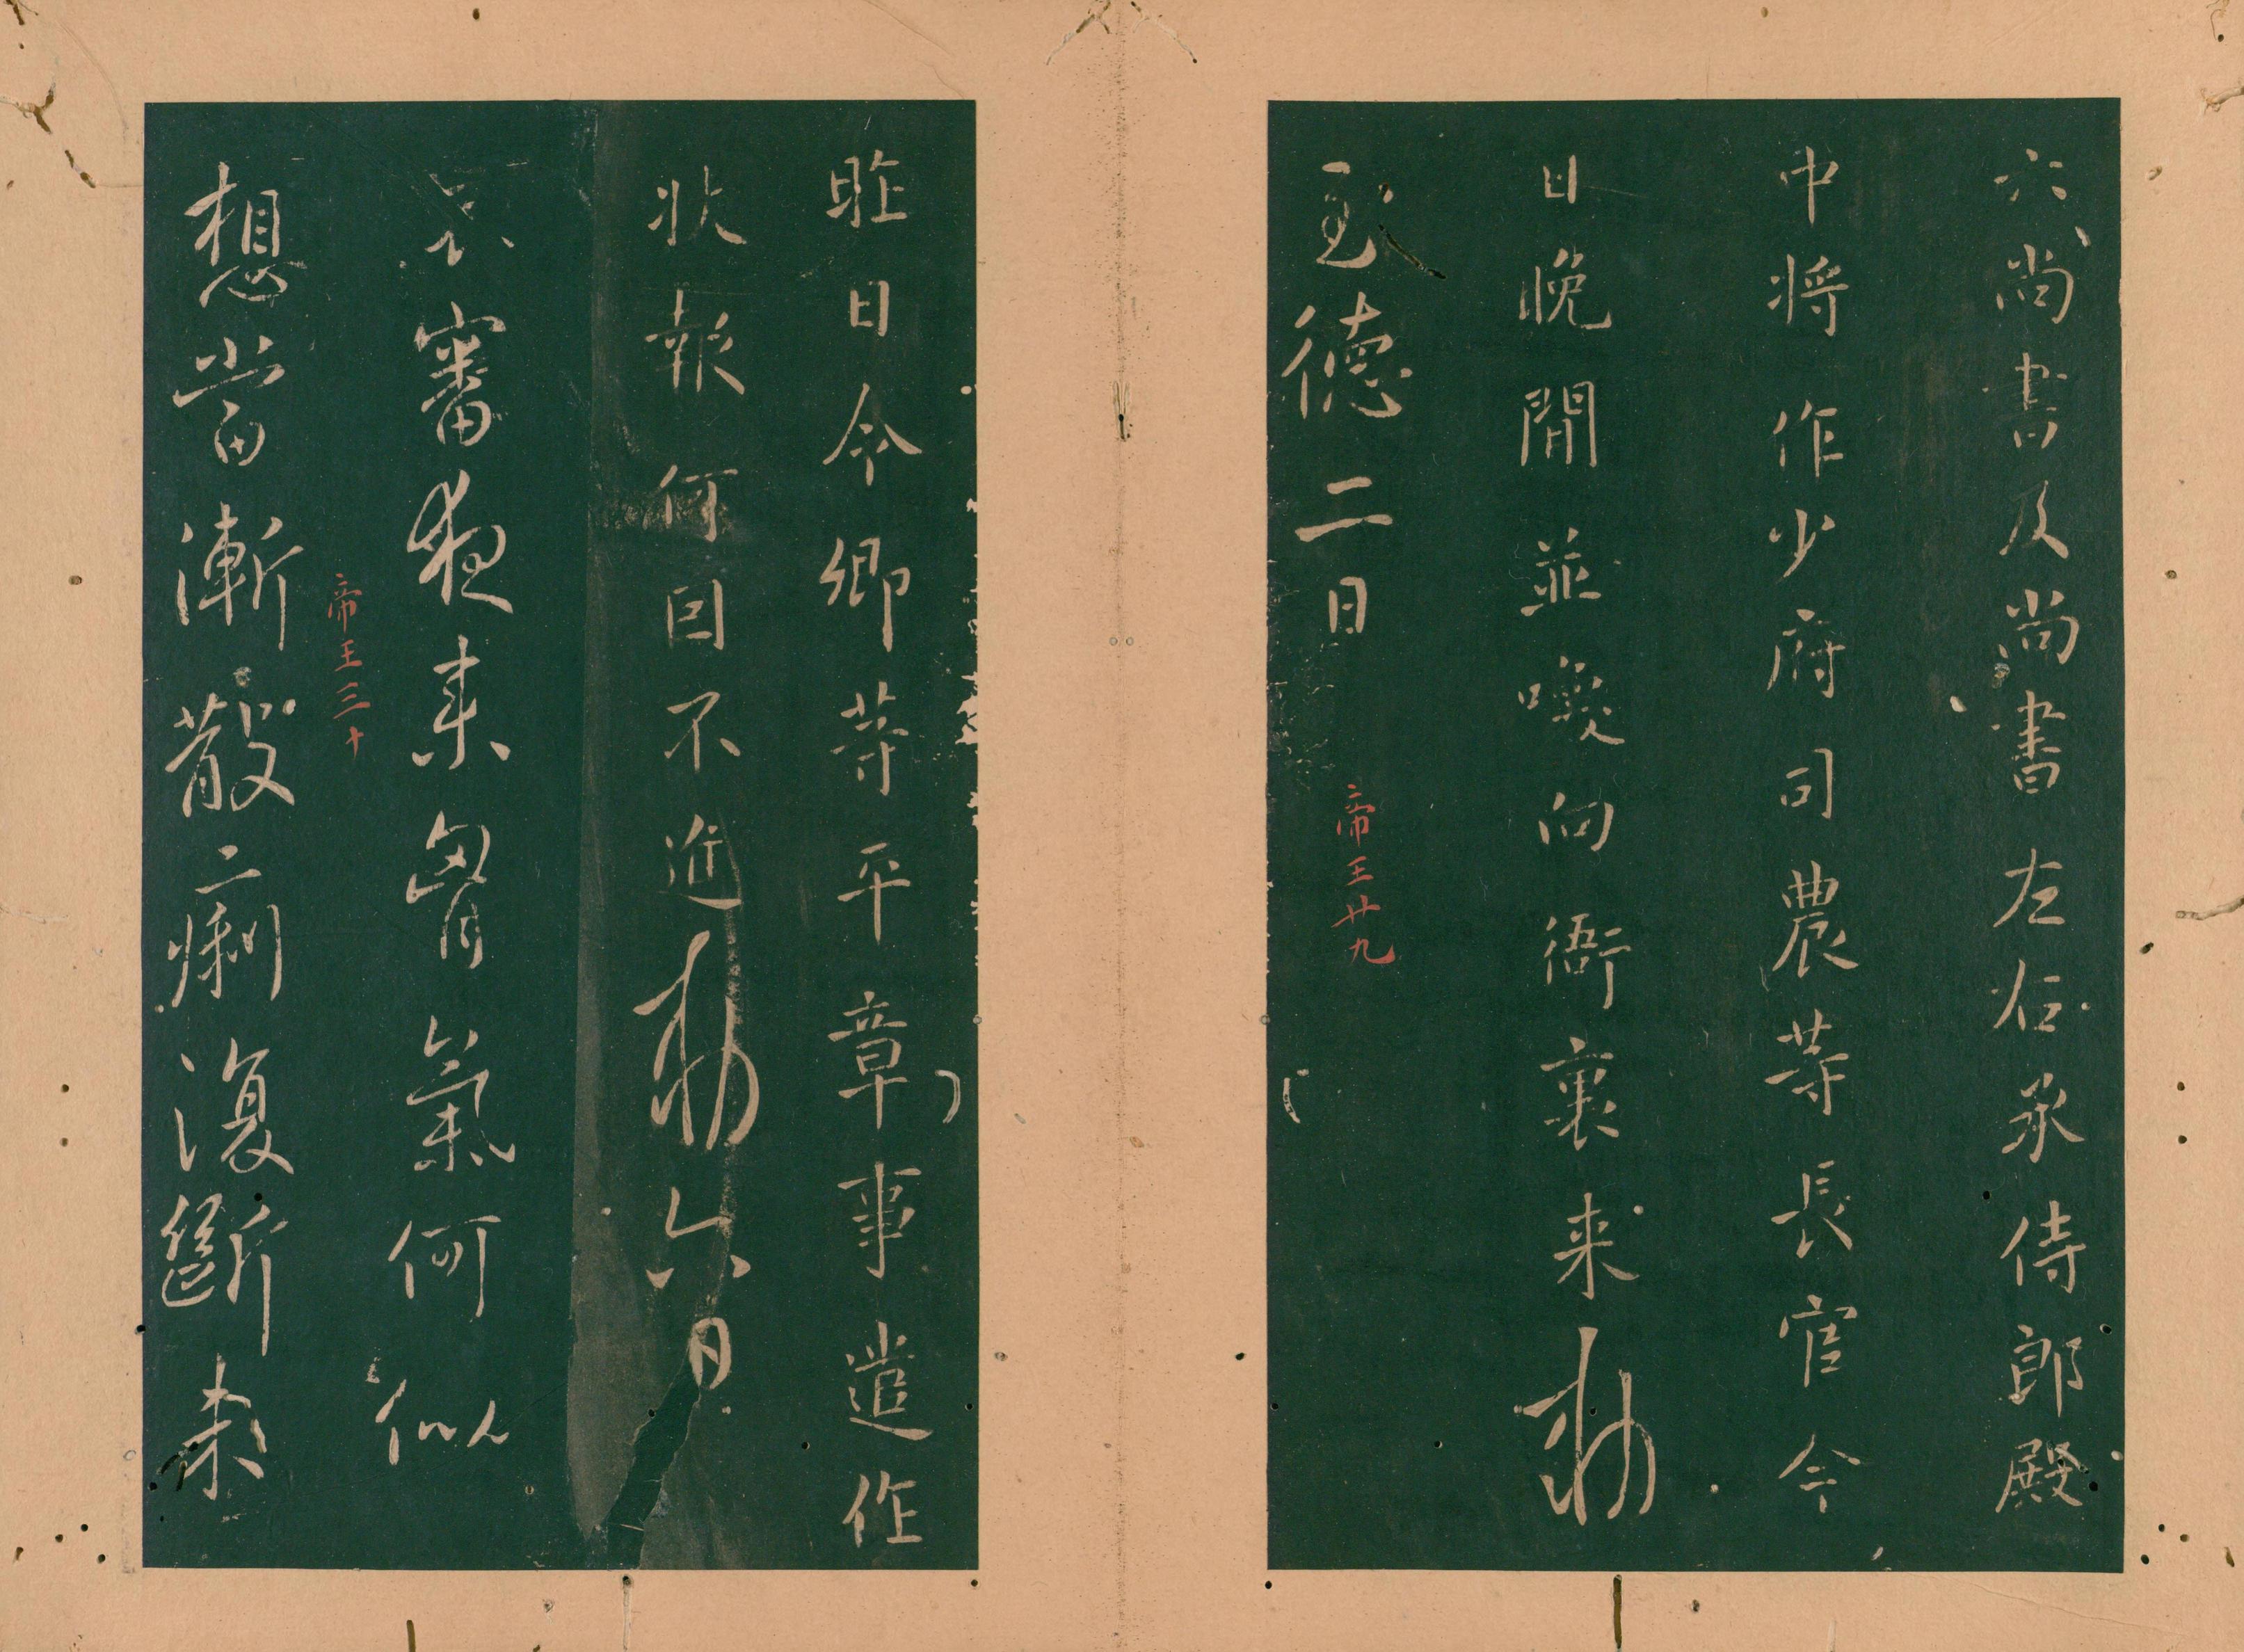 六尚書及尚書左右丞侍郎殿
中將作少府司農等長官今
日晚間並喚向衙裏来勅
德二日
帝王廿九
昨日令卿等平章事遣作
狀報何因不進勅六日
審夜来胷氣何似
帝王三十
想當漸散痢復斷